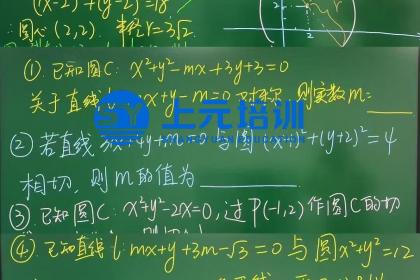 (x-2)²+(y-2)²=18
∴圆心(2,2). 半径r=3√2.
① 已知圆C: x²+y²-mx+3y+3=0
关于直线l: mx+y-m=0 对称, 则实数m=
上元培训
② 若直线3x+4y+m=0与圆(x-1)²+(y+2)²=4
相切, 则m的值为
③ 已知圆C: x²+y²-2x=0, 过P(-1,2)作圆C的切
④ 已知直线l: mx+y+3m-√3=0与圆x²+y²=12